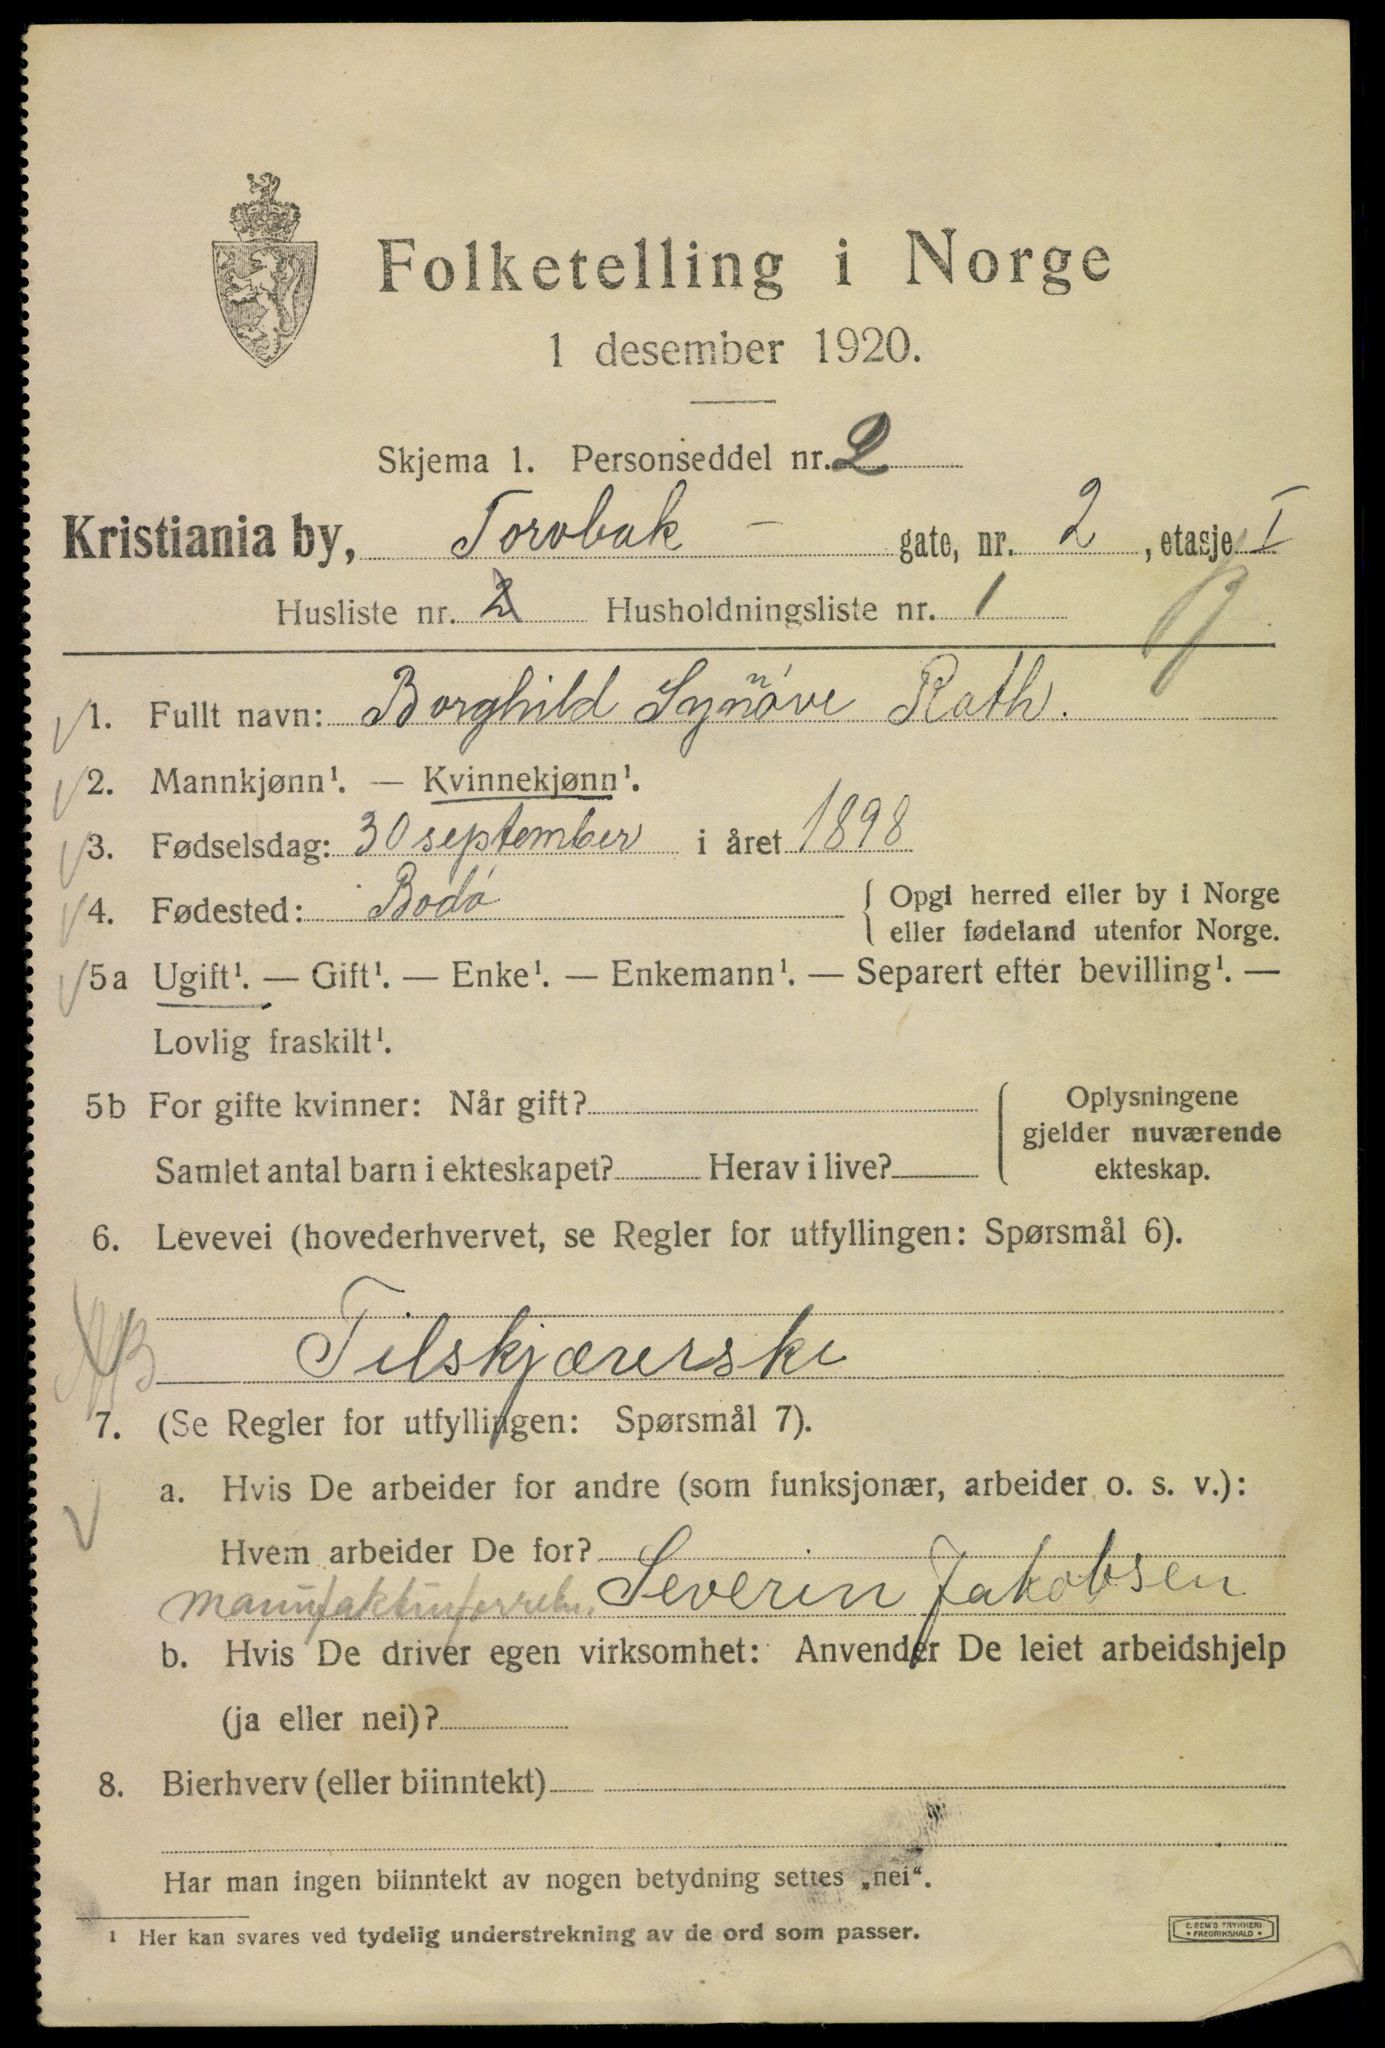 Folketelling i Norge
1 desember 1920.
Skjema 1. Personseddel nr. 2
Kristiania by, Torvbak - gate, nr. 2, etasje I
Husliste nr. 2 Husholdningsliste nr. 1
1. Fullt navn: Borghild Synnøve Rath.
2. Mannkjønn¹. — Kvinnekjønn¹.
3. Fødselsdag: 30 september i året 1898
4. Fødested: Bodø { Opgi herred eller by i Norge
eller fødeland utenfor Norge.
5a Ugift¹. — Gift¹. — Enke¹. — Enkemann¹. — Separert efter bevilling¹. —
Lovlig fraskilt¹.
5b For gifte kvinner: Når gift?
Samlet antal barn i ekteskapet? Herav i live?
Oplysningene
gjelder nuværende
ekteskap.
6. Levevei (hovederhvervet, se Regler for utfyllingen: Spørsmål 6).
Tilskjærerske
7. (Se Regler for utfyllingen: Spørsmål 7).
a. Hvis De arbeider for andre (som funksjonær, arbeider o. s. v.):
Hvem arbeider De for?
manufakturforretn. Severin Jakobsen
b. Hvis De driver egen virksomhet: Anvender De leiet arbeidshjelp
(ja eller nei)?
8. Bierhverv (eller biinntekt)
Har man ingen biinntekt av nogen betydning settes „nei“.
¹ Her kan svares ved tydelig understrekning av de ord som passer.
E. SEM'S TRYKKERI
• FREDRIKSHALD •